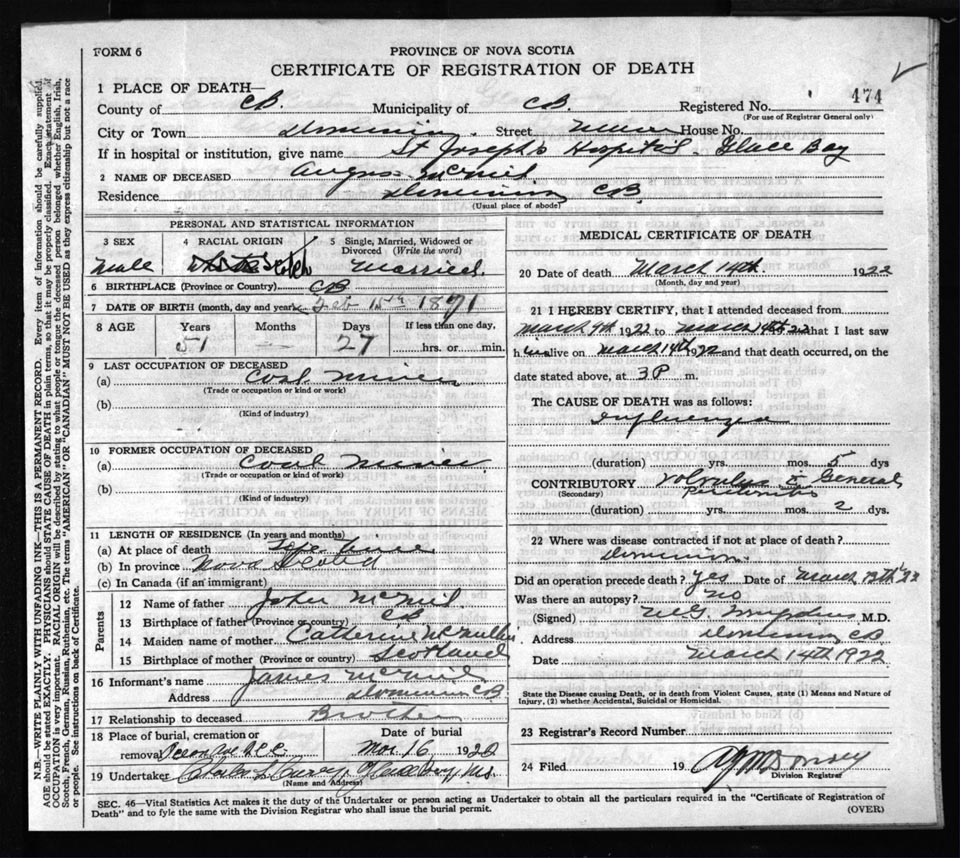 FORM 6
PROVINCE OF NOVA SCOTIA
CERTIFICATE OF REGISTRATION OF DEATH
1 PLACE OF DEATH—
County of C.B. Municipality of C.B. Registered No. 474
(For use of Registrar General only)
City or Town Dominion Street House No.
If in hospital or institution, give name St Joseph's Hospital - Glace Bay
2 NAME OF DECEASED Angus McNeil
Residence Dominion CB
(Usual place of abode)
PERSONAL AND STATISTICAL INFORMATION
3 SEX 4 RACIAL ORIGIN 5 Single, Married, Widowed or Divorced (Write the word)
Male Scotch Married.
6 BIRTHPLACE (Province or Country) CB
7 DATE OF BIRTH (month, day and year) Feb 15th 1871
8 AGE Years Months Days If less than one day,
51 — 27 hrs. or min.
9 LAST OCCUPATION OF DECEASED
(a) Coal Miner
(Trade or occupation or kind or work)
(b)
(Kind of industry)
10 FORMER OCCUPATION OF DECEASED
(a) Coal Miner
(Trade or occupation or kind of work)
(b)
(Kind of industry)
11 LENGTH OF RESIDENCE (In years and months)
(a) At place of death Life time
(b) In province Nova Scotia
(c) In Canada (if an immigrant)
Parents
12 Name of father John McNeil
13 Birthplace of father (Province or country) CB
14 Maiden name of mother Catherine McMullin
15 Birthplace of mother (Province or country) Scotland
16 Informant's name James McNeil
Address Dominion CB
17 Relationship to deceased Brother
18 Place of burial, cremation or removal Date of burial
Mar 16 1922
19 Undertaker Glace Bay, N.S.
(Name and Address)
MEDICAL CERTIFICATE OF DEATH
20 Date of death March 14th. 1922
(Month, day and year)
21 I HEREBY CERTIFY, that I attended deceased from
March 9th 1922 to March 14th 1922 that I last saw
him alive on March 14th 1922 and that death occurred, on the
date stated above, at 3 P. m.
The CAUSE OF DEATH was as follows:
Influenza
(duration) yrs. mos. 5 dys
CONTRIBUTORY Volvulus c General
(Secondary) Peritonitis
(duration) yrs. mos. 2 dys.
22 Where was disease contracted if not at place of death?
Dominion.
Did an operation precede death? Yes Date of March 13th '22
Was there an autopsy? No
(Signed) M.D.
Address Dominion CB
Date March 14th 1922
State the Disease causing Death, or in death from Violent Causes, state (1) Means and Nature of
Injury, (2) whether Accidental, Suicidal or Homicidal.
23 Registrar's Record Number
24 Filed 19
Division Registrar
SEC. 46—Vital Statistics Act makes it the duty of the Undertaker or person acting as Undertaker to obtain all the particulars required in the "Certificate of Registration of
Death" and to fyle the same with the Division Registrar who shall issue the burial permit. (OVER)
N.B.—WRITE PLAINLY WITH UNFADING INK—THIS IS A PERMANENT RECORD. Every item of information should be carefully supplied.
AGE should be stated EXACTLY. PHYSICIANS should STATE CAUSE OF DEATH in plain terms, so that it may be properly classified. Exact statement of
OCCUPATION is very important. RACIAL ORIGIN will be described by stating to what people or tongue the deceased person belonged whether English, Irish,
Scotch, French, German, Russian, Ruthenian, etc. The terms "AMERICAN" OR "CANADIAN" MUST NOT BE USED as they express citizenship but not a race
or people. See instructions on back of Certificate.